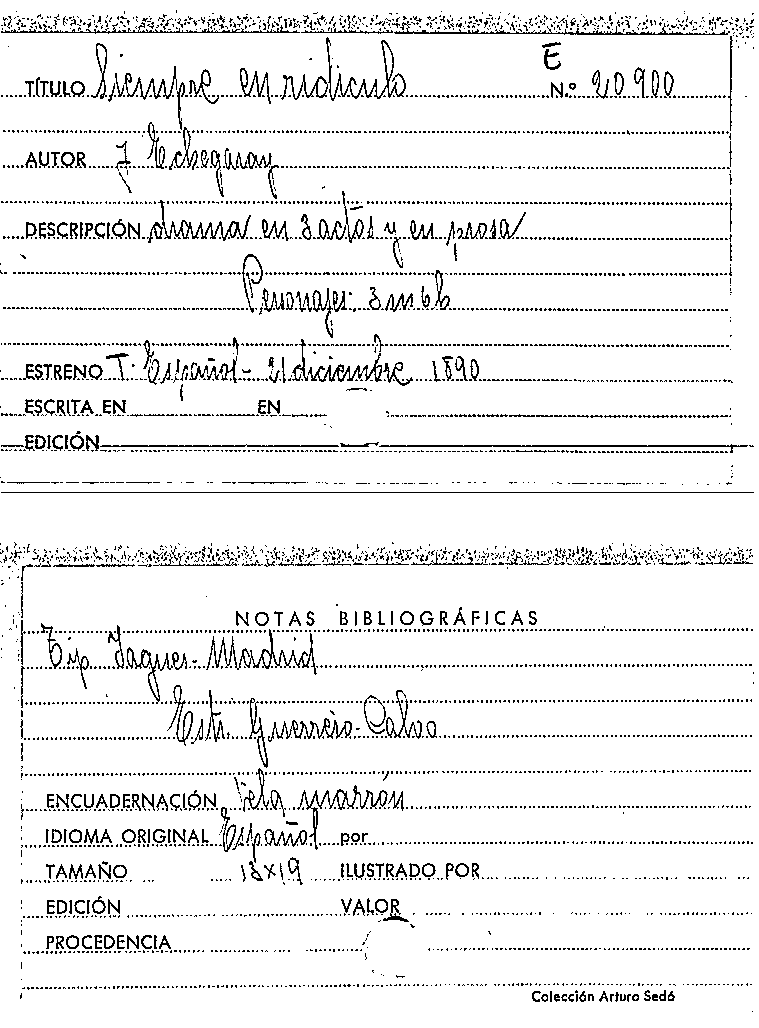 E
TÍTULO Siempre en ridiculo N.º 20900
AUTOR J Echegaray
DESCRIPCIÓN drama en 3 actos y en prosa
Personajes: 3 m 6 h
ESTRENO T. Español - 21 diciembre 1890
ESCRITA EN EN
EDICIÓN
NOTAS BIBLIOGRÁFICAS
Tip Yagues - Madrid
Estr. Guerrero - Calvo
ENCUADERNACIÓN tela marrón
IDIOMA ORIGINAL Español por
TAMAÑO 13x19 ILUSTRADO POR
EDICIÓN VALOR
PROCEDENCIA
Colección Arturo Sedó